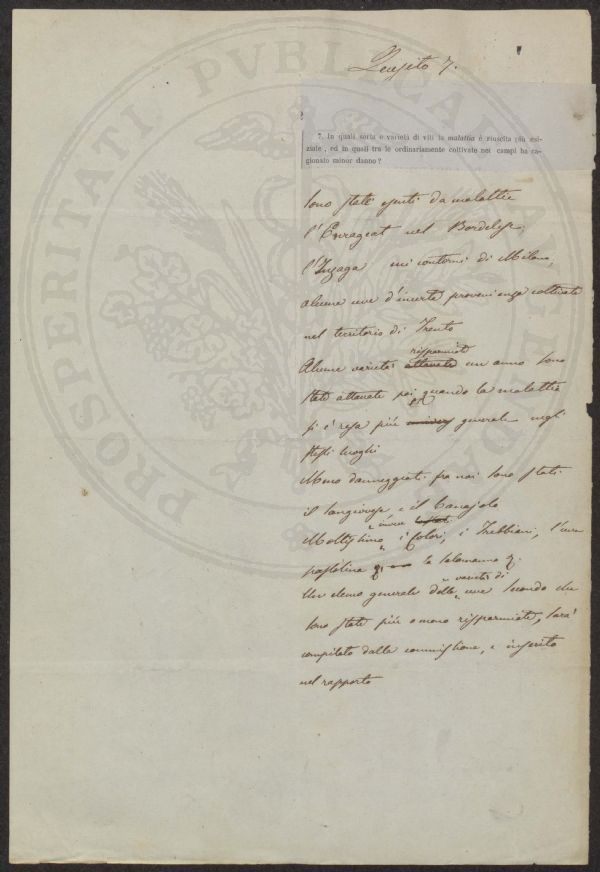 Quesito 7.
7. In quali sorta e varietà di viti la malattia è riuscita più esi-
ziale, ed in quali tra le ordinariamente coltivate nei campi ha ca-
gionato minor danno?
Sono stati esenti da malattie
l'Enrageat nel Bordelese,
l'Inzaga nei contorni di Milano,
alcune uve d'incerta provenienza coltivate
nel territorio di Trento
risparmiate
Alcune varietà attaccate un anno sono
state attaccate poi quando la malattia
si è resa più generale negli
stessi luoghi
Meno danneggiati fra noi sono stati
il sangiovese, e il Canajolo
e invece
Moltissimo i Colori, i Trebbiani, l'uva
la salamanna
varietà di
Un elenco generale delle uve secondo che
sono state più o meno risparmiate, sarà
compilato dalla commissione, e inserito
nel rapporto
PROSPERITATI PVBLICAE AVGENDAE